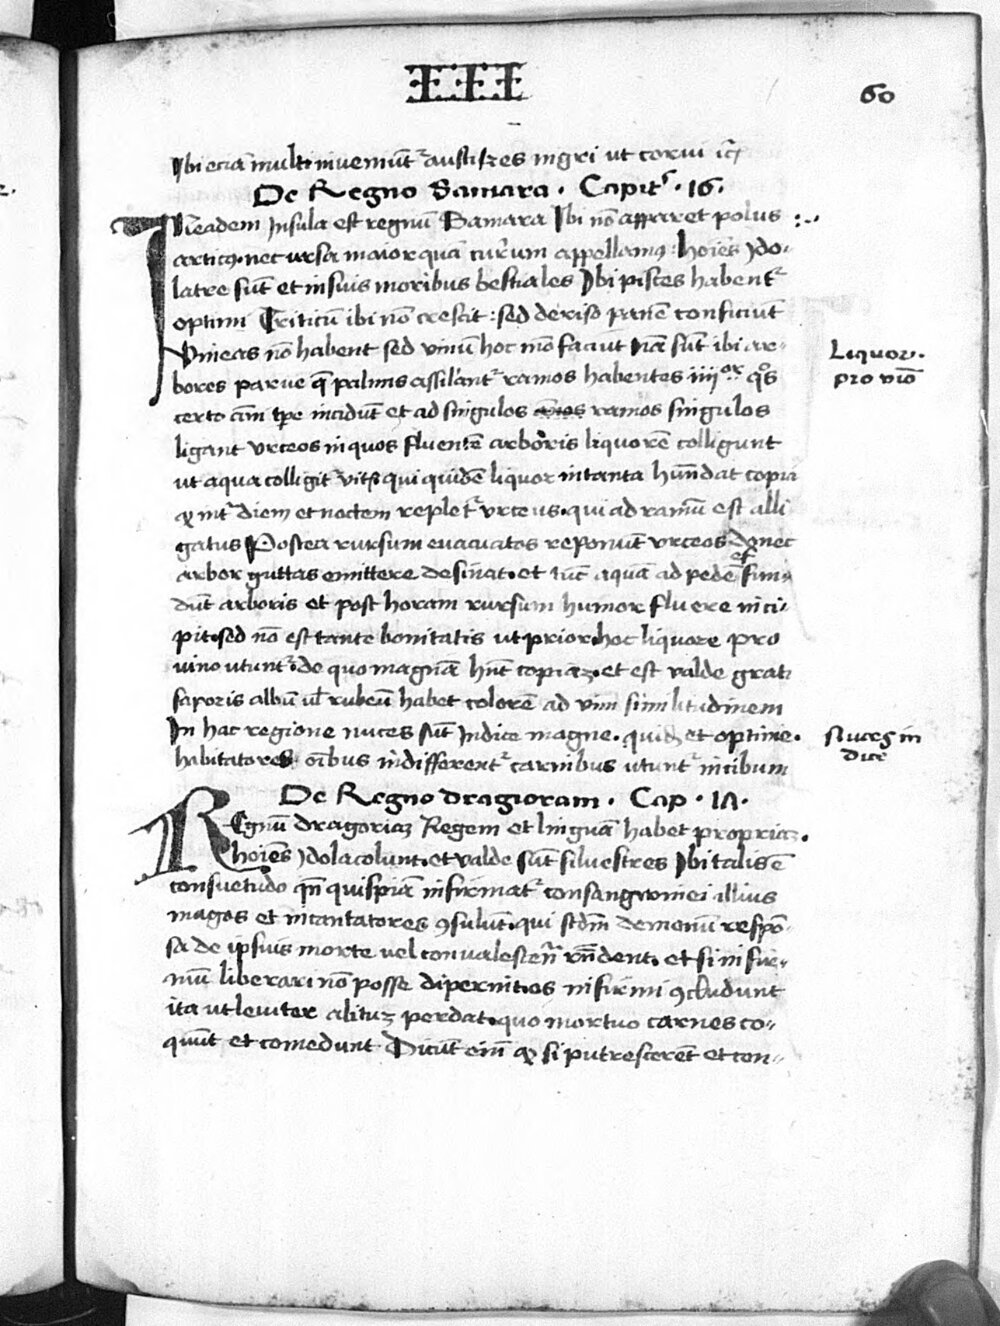 III
60
Ibi eciā multi inveniūt᷑ austures nigri ut corui
De Regno Samara . Capit᷑ . 16 .
IN eadem Insula est regnū Samara Ibi nō apparet polus
articus nec ursa maior quā currum appellamus : hoīes ydo-
latre sūt et in suis moribus bestiales Ibi pisces habent᷑
optimi Triticū ibi nō crescit : sed de riso panē conficiūt
Vineas nō habent sed vinū hoc mō faciūt Nā sūt ibi ar-
bores parue q̄ palmis assilāt᷑ ramos habentes iiii^or q^os
certo āni tp̄e incidūt et ad singulos ramos singulos
ligant vrceos in quos fluentē arboris liquorē colligunt
ut aqua colligit᷑ vitis qui quidē liquor in tanta hūndat copia
ꝙ int᷑ diem et noctem replet᷑ vrceus . qui ad ramū est alli
gatus Postea rursum euacuatos reponūt vrceos donec
arbor guttas emittere desinat . et tūc aquā ad pedē fun-
dūt arboris et post horam rursum humor fluere inci-
pit . sed nō est tante bonitatis ut prior hoc liquore pro
uino utunt᷑ . de quo magnā hn̄t copiaz . et est valde grati
saporis albū ul̄ rubeū habet colorē ad vini similitudinem
In hac regione nuces sūt Indice magne . et optime .
habitatores oībus indifferent᷑ carnibus utunt᷑ in cibum
De Regno dragoiam . Cap . 17 .
REgnū dragoriaz Regem et linguā habet propriaz .
hoīes ydola colunt . et valde sūt siluestres Ibi talis ē
consuetudo qn̄ quispiā infirmat᷑ consangwinei illius
magos et incantatores ꝯsulūt . qui scdm̄ demonū respō-
sa de ipsius morte vel conualescen̄ rn̄dent . et si infir-
mū liberari nō posse dixerint . os infirmi ꝯcludunt
ita ut leuiter alituz perdat . quo mortuo carnes co-
quūt et comedunt Dicūt enī ꝙ si putrescerēt et con-
Liquor .
pro vīo
Nuces in
dice